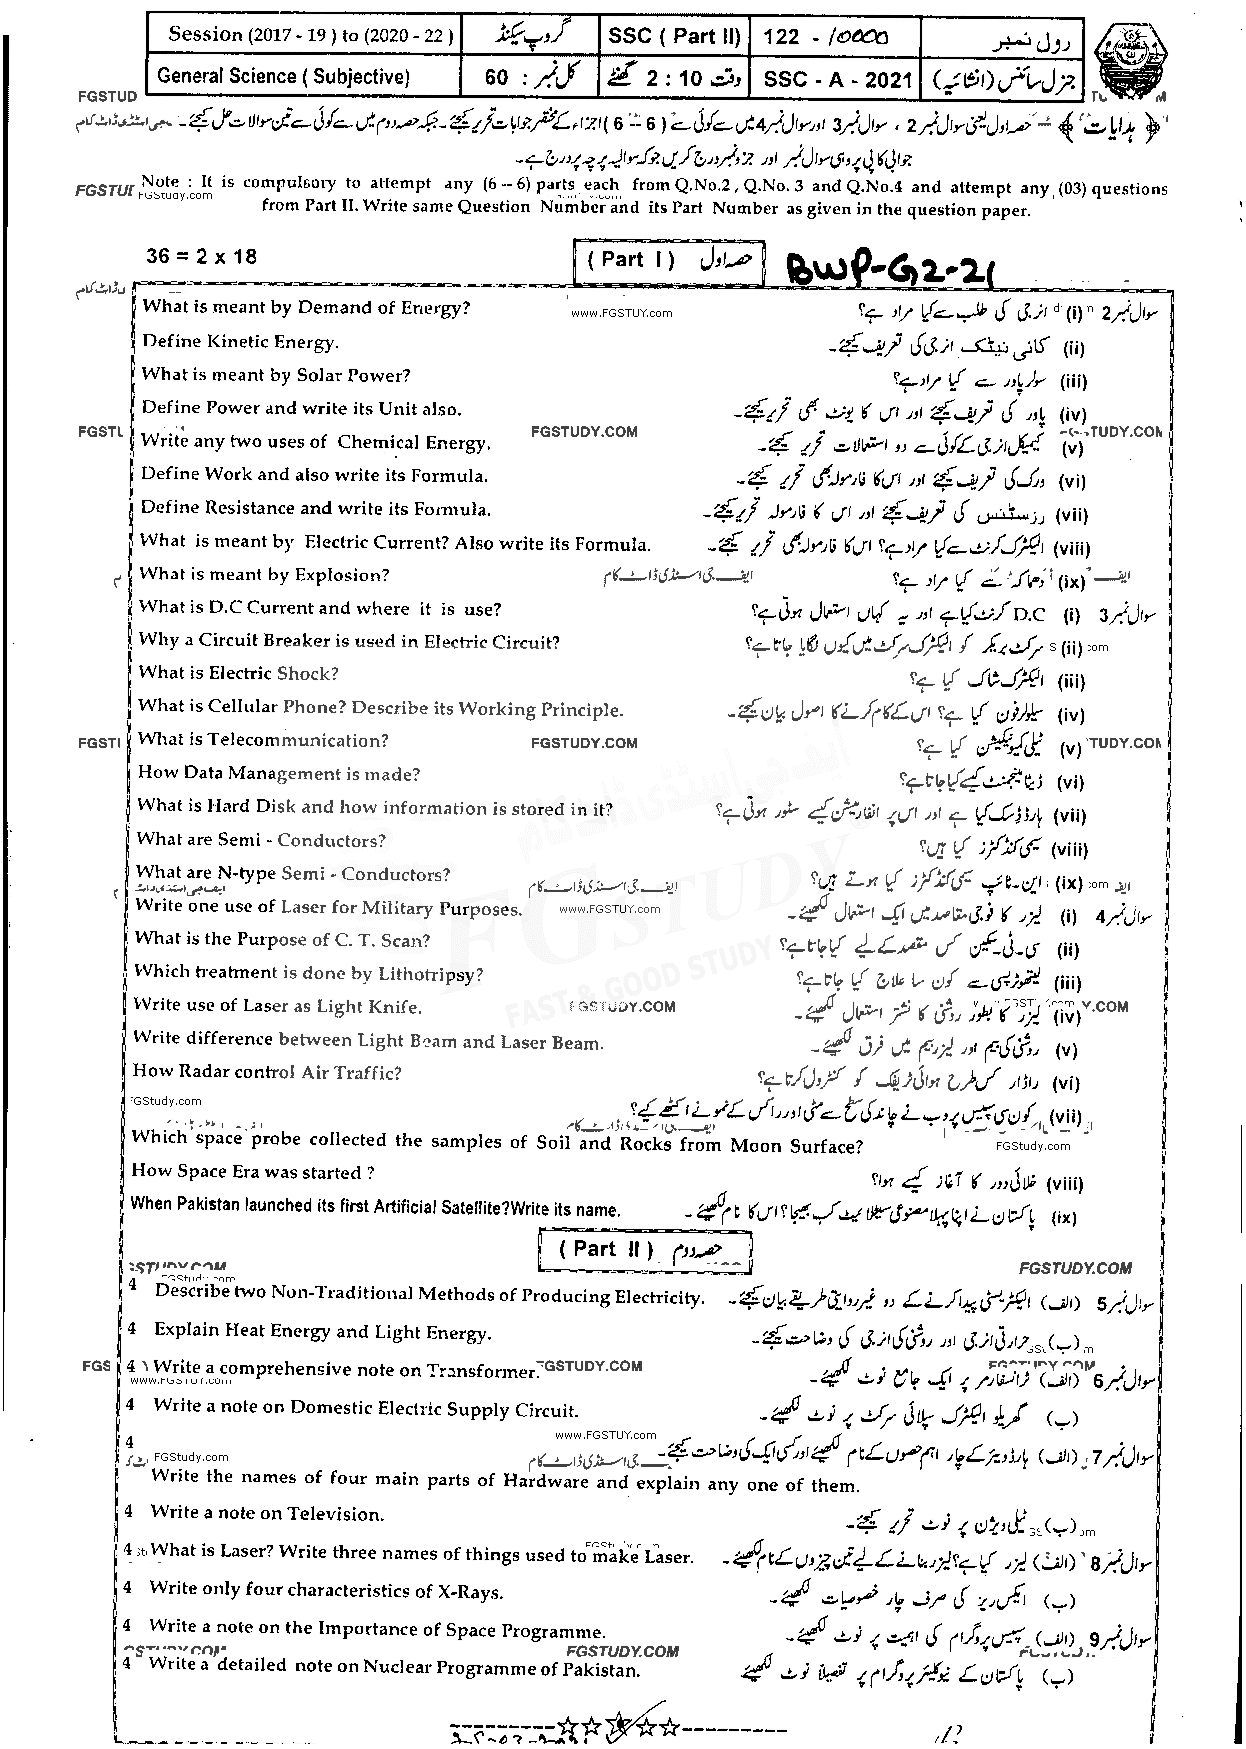 Session (2017 - 19 ) to (2020 - 22 ) گروپ سیکنڈ SSC ( Part II) 122 - 10000 رول نمبر
General Science ( Subjective) کل نمبر : 60 وقت 2 : 10 گھنٹے SSC - A - 2021 جنرل سائنس (انشائیہ)
FGSTUD
﴿ ہدایات ﴾ = حصہ اول یعنی سوال نمبر 2 ، سوال نمبر 3 اور سوال نمبر 4 میں سے کوئی سے ( 6 - 6 ) اجزاء کے مختصر جوابات تحریر کیجئے۔ جبکہ حصہ دوم میں سے کوئی سے تین سوالات حل کیجئے۔
جوابی کاپی پر وہی سوال نمبر اور جزو نمبر درج کریں جو کہ سوالیہ پرچہ پر درج ہے۔
Note : It is compulsory to attempt any (6 – 6) parts each from Q.No.2 , Q.No. 3 and Q.No.4 and attempt any (03) questions
FGSTUD FGStudy.com
from Part II. Write same Question Number and its Part Number as given in the question paper.
36 = 2 x 18 ( Part I ) حصہ اول BWP-G2-21
What is meant by Demand of Energy? www.FGSTUY.com سوال نمبر 2 (i) انرجی کی طلب سے کیا مراد ہے؟
Define Kinetic Energy. (ii) کائی نیٹک انرجی کی تعریف کیجئے۔
What is meant by Solar Power? (iii) سولر پاور سے کیا مراد ہے؟
Define Power and write its Unit also. (iv) پاور کی تعریف کیجئے اور اس کا یونٹ بھی تحریر کیجئے۔
FGSTU FGSTUDY.COM TUDY.COM
Write any two uses of Chemical Energy. (v) کیمیکل انرجی کے کوئی سے دو استعمالات تحریر کیجئے۔
Define Work and also write its Formula. (vi) ورک کی تعریف کیجئے اور اس کا فارمولہ بھی تحریر کیجئے۔
Define Resistance and write its Formula. (vii) رزسٹنس کی تعریف کیجئے اور اس کا فارمولہ تحریر کیجئے۔
What is meant by Electric Current? Also write its Formula. (viii) الیکٹرک کرنٹ سے کیا مراد ہے؟ اس کا فارمولہ بھی تحریر کیجئے۔
What is meant by Explosion? ایف جی اسٹڈی ڈاٹ کام (ix) دھماکہ سے کیا مراد ہے؟
What is D.C Current and where it is use? سوال نمبر 3 (i) D.C کرنٹ کیا ہے اور یہ کہاں استعمال ہوتی ہے؟
Why a Circuit Breaker is used in Electric Circuit? (ii) سرکٹ بریکر کو الیکٹرک سرکٹ میں کیوں لگایا جاتا ہے؟
What is Electric Shock? (iii) الیکٹرک شاک کیا ہے؟
What is Cellular Phone? Describe its Working Principle. (iv) سیلولر فون کیا ہے؟ اس کے کام کرنے کا اصول بیان کیجئے۔
FGSTI What is Telecommunication? FGSTUDY.COM (v) ٹیلی کمیونیکیشن کیا ہے؟ TUDY.COM
How Data Management is made? (vi) ڈیٹا مینجمنٹ کیسے کیا جاتا ہے؟
What is Hard Disk and how information is stored in it? (vii) ہارڈ ڈسک کیا ہے اور اس پر انفارمیشن کیسے سٹور ہوتی ہے؟
What are Semi - Conductors? (viii) سیمی کنڈکٹرز کیا ہیں؟
What are N-type Semi - Conductors? ایف جی اسٹڈی ڈاٹ کام (ix) این۔ٹائپ سیمی کنڈکٹرز کیا ہوتے ہیں؟
Write one use of Laser for Military Purposes. www.FGSTUY.com سوال نمبر 4 (i) لیزر کا فوجی مقاصد میں ایک استعمال لکھیئے۔
What is the Purpose of C. T. Scan? (ii) سی۔ٹی۔سکین کس مقصد کے لیے کیا جاتا ہے؟
Which treatment is done by Lithotripsy? (iii) لیتھوٹرپسی سے کون سا علاج کیا جاتا ہے؟
Write use of Laser as Light Knife. FGSTUDY.COM (iv) لیزر کا بطور روشنی کا نشتر استعمال لکھیئے۔ Y.COM
Write difference between Light Beam and Laser Beam. (v) روشنی کی بیم اور لیزر بیم میں فرق لکھیئے۔
How Radar control Air Traffic? (vi) راڈار کس طرح ہوائی ٹریفک کو کنٹرول کرتا ہے؟
FGStudy.com (vii) کون سی سپیس پروب نے چاند کی سطح سے مٹی اور راکس کے نمونے اکٹھے کیے؟
Which space probe collected the samples of Soil and Rocks from Moon Surface? FGStudy.com
How Space Era was started ? (viii) خلائی دور کا آغاز کیسے ہوا؟
When Pakistan launched its first Artificial Satellite?Write its name. (ix) پاکستان نے اپنا پہلا مصنوعی سیٹلائیٹ کب بھیجا؟ اس کا نام لکھیئے۔
( Part II ) حصہ دوم
FGSTUDY.COM
4 Describe two Non-Traditional Methods of Producing Electricity. سوال نمبر 5 (الف) الیکٹریسٹی پیدا کرنے کے دو غیر روایتی طریقے بیان کیجئے۔
4 Explain Heat Energy and Light Energy. (ب) حرارتی انرجی اور روشنی کی انرجی کی وضاحت کیجئے۔
FGS 4 Write a comprehensive note on Transformer. FGSTUDY.COM سوال نمبر 6 (الف) ٹرانسفارمر پر ایک جامع نوٹ لکھیئے۔
4 Write a note on Domestic Electric Supply Circuit. (ب) گھریلو الیکٹرک سپلائی سرکٹ پر نوٹ لکھیئے۔
www.FGSTUY.com
4 سوال نمبر 7 (الف) ہارڈویئر کے چار اہم حصوں کے نام لکھیئے اور کسی ایک کی وضاحت کیجئے۔
FGStudy.com
Write the names of four main parts of Hardware and explain any one of them.
4 Write a note on Television. (ب) ٹیلی ویژن پر نوٹ تحریر کیجئے۔
4 What is Laser? Write three names of things used to make Laser. سوال نمبر 8 (الف) لیزر کیا ہے؟ لیزر بنانے کے لیے تین چیزوں کے نام لکھیئے۔
4 Write only four characteristics of X-Rays. (ب) ایکس ریز کی صرف چار خصوصیات لکھیئے۔
4 Write a note on the Importance of Space Programme. سوال نمبر 9 (الف) سپیس پروگرام کی اہمیت پر نوٹ لکھیئے۔
FGSTUDY.COM
4 Write a detailed note on Nuclear Programme of Pakistan. (ب) پاکستان کے نیوکلیئر پروگرام پر تفصیلاً نوٹ لکھیئے